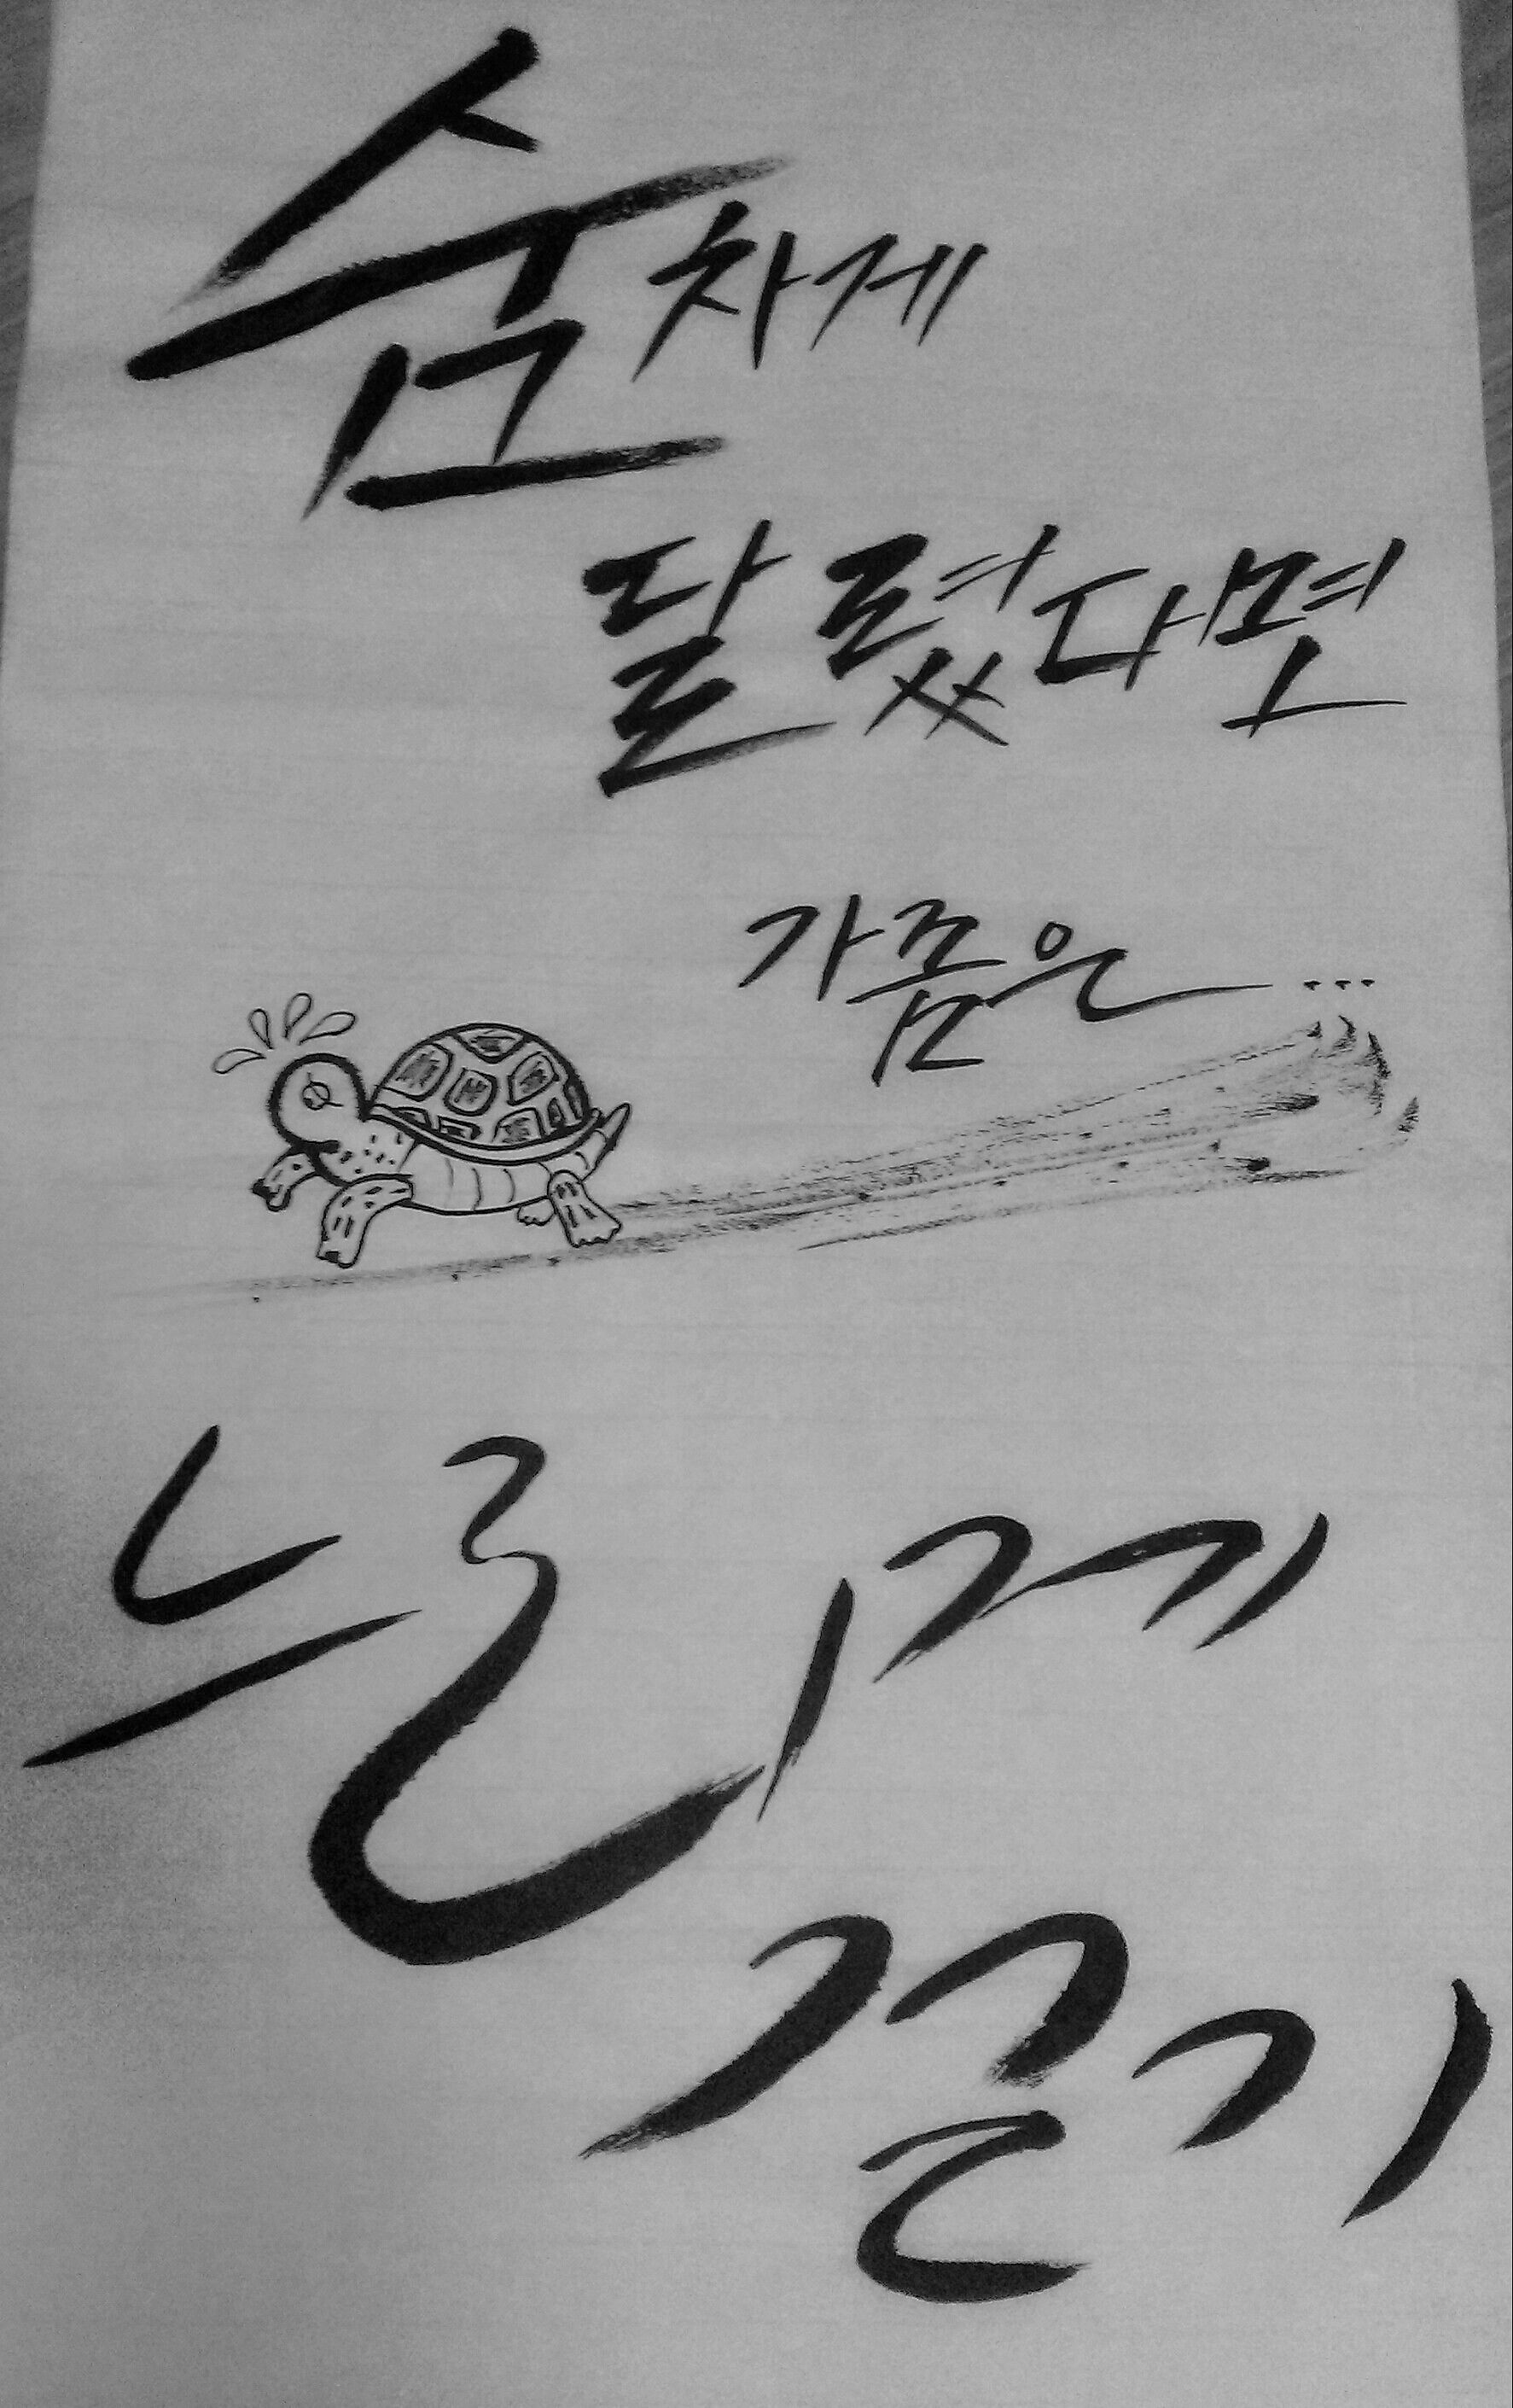 숨차게
달렸다면
가끔은...
느리게
걷기